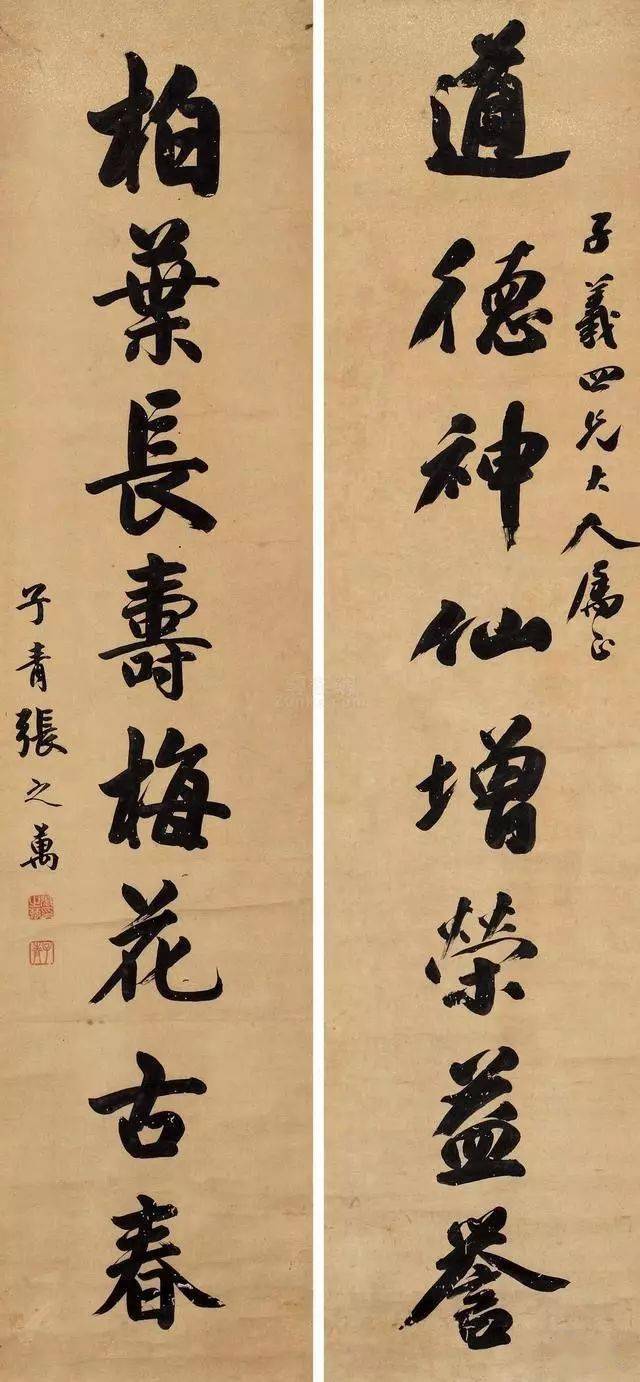 道德神仙增榮益譽
子義四兄大人屬正
柏葉長壽梅花古春
子青張之萬